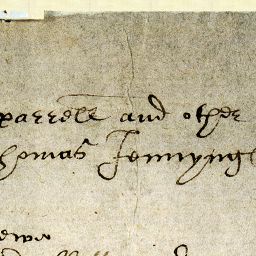 parrell and other
homas Jennyng
ewe